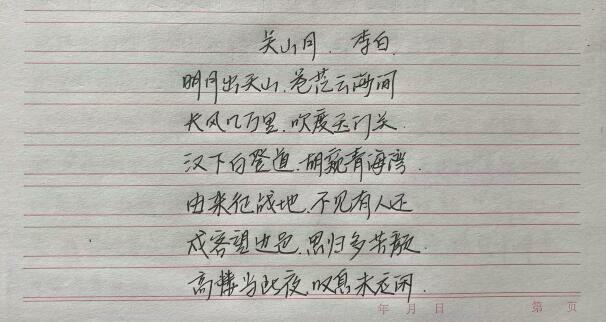 关山月. 李白.
明月出天山、苍茫云海间
长风几万里.吹度玉门关.
汉下白登道.胡窥青海湾.
由来征战地.不见有人还
戍客望边邑.思归多苦颜.
高楼当此夜.叹息未应闲.
年 月 日 第 页